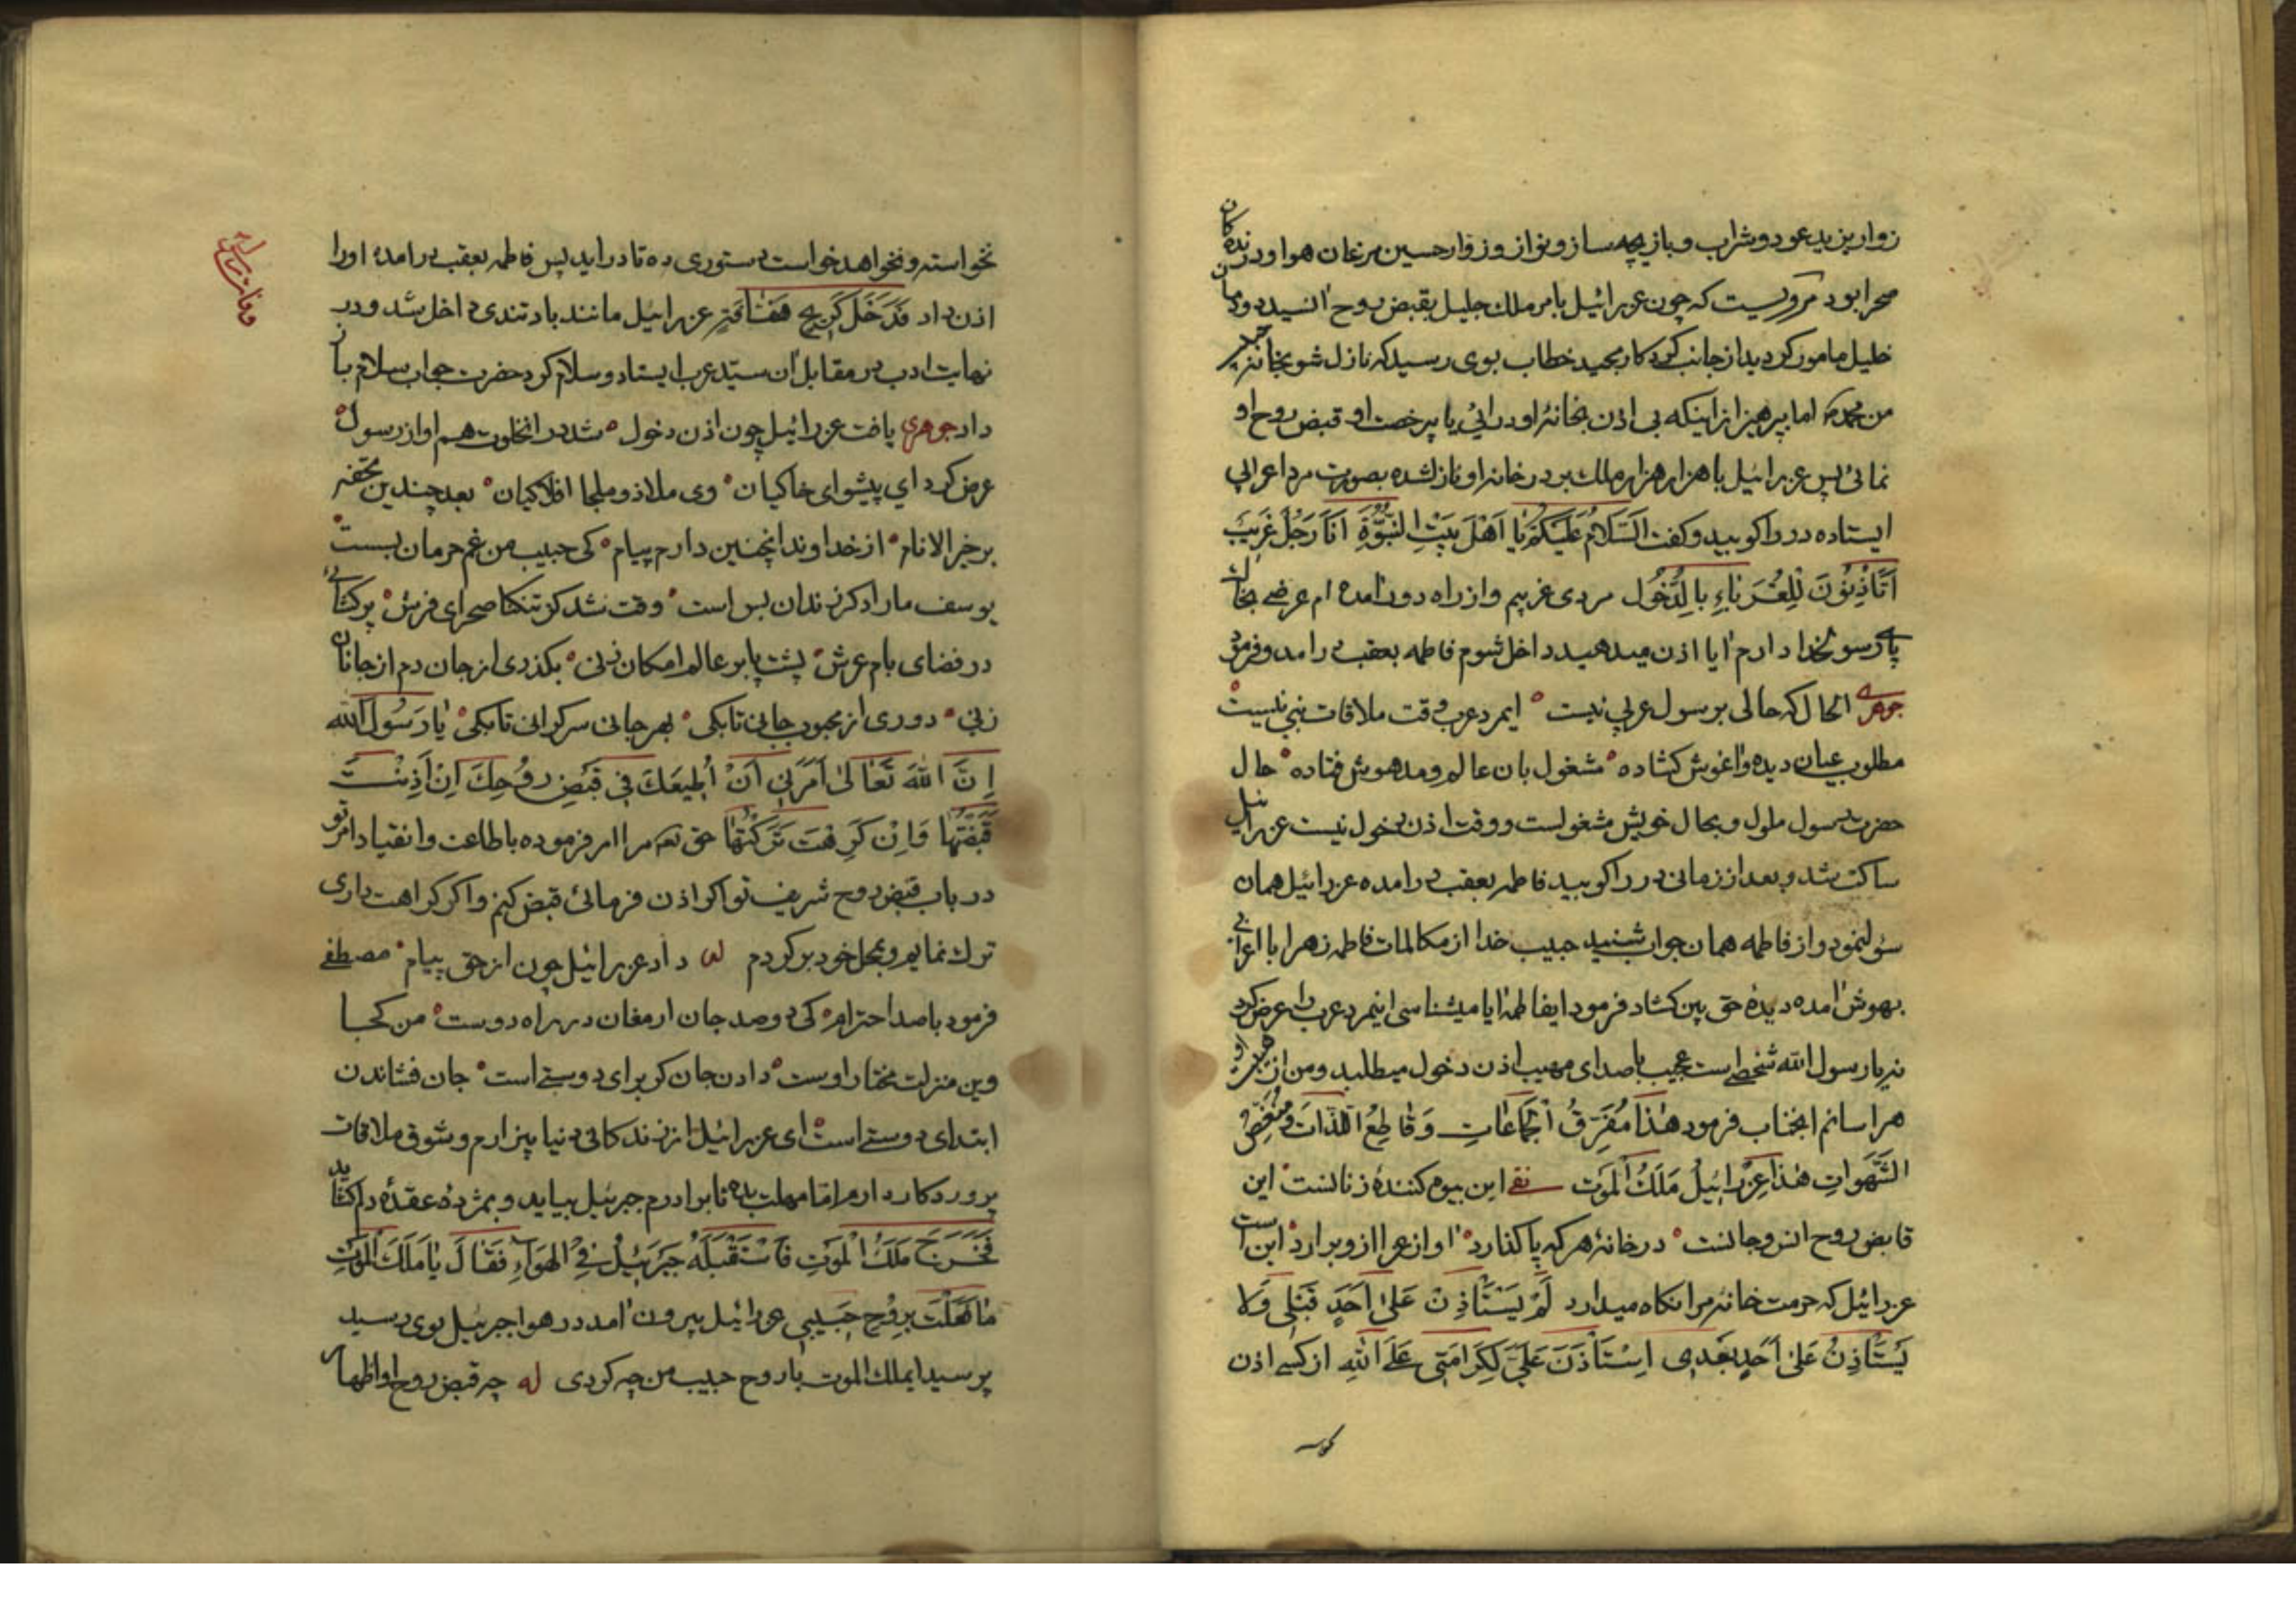 زوار یزید عود و شراب و بازیچه ساز و نواز و زوار حسین مرغان هوا و درندکان
صحرا بود مرویست که چون عزرائیل بامر ملک جلیل بقبض روح انسید دودمان
خلیل مامور کردید از جانب کردکار مجید خطاب بوی رسید که نازل شو بخانه
من محمد اما بپرهیز از اینکه بی اذن بخانهٔ او در ائی یا بی رخصت او قبض روح او
نمائی پس عزرائیل با هزار هزار ملک بر در خانه او نازلشده بصورت مرد اعرابی
ایستاده در را کوبید و کفت اَلسَّلامُ عَلَیْکُمْ یٰا اَهْلَ بَیْتِ النُّبُوَّةِ اَنَا رَجُلٌ غَریبٌ
اَتَاْذِنُونَ لِلْغُرَبٰاءِ بِالدُّخُولِ مردی غریبم و از راه دور آمده ام عرضی بخاک
پای رسولخدا دارم آیا اذن میدهید داخل شوم فاطمه بعقب در آمد و فرمود
جوهری الحال که حالی برسول عربی نیست ایمرد عرب وقت ملاقات نبی نیست
مطلوب عیان دیده و اغوش کشاده مشغول بان عالم و مدهوش فتاده حال
حضرت رسول ملول و بحال خویش مشغولست و وقت اذن دخول نیست عزرائیل
ساکت شد و بعد از زمانی در را کوبید فاطمه بعقب در امده عزرائیل همان
سوال نمود و از فاطمه همان جواب شنید حبیب خدا از مکالمات فاطمه زهرا با اعرابی
بهوش آمده دیدهٔ حق بین کشاد فرمود ایفاطمه ایا میشناسی اینمرد عرب را عرض کرد
نه یا رسول الله شخصی است عجیب با صدای مهیب اذن دخول میطلبد و من از
هراسانم انجناب فرمود هٰذٰا مُفَرِّقُ الْجَمٰاعٰاتِ وَ قٰاطِعُ اللَّذّٰاتِ وَ مُنَغِّصُ
الشَّهَوٰاتِ هٰذٰا عِزْرٰائیلُ مَلَکُ الْمَوْتِ این بیوه کنندهٔ زنانست این
قابض روح انس و جانست در خانهٔ هرکه پا کذارد اواز عزا از و برارد این است
عزرائیل که حرمت خانهٔ مرا نکاه میدارد لَمْ یَسْتَاْذِنْ عَلیٰ اَحَدٍ قَبْلی وَ لٰا
یَسْتَاْذِنُ عَلیٰ اَحَدٍ بَعْدی اِسْتَاْذَنَ عَلَیَّ لِکَرٰامَتی عَلَی اللهِ از کسی اذن
نخواسته و نخواهد خواست دستوری ده تا در اید پس فاطمه بعقب در امده او را
اذن داد فَدَخَلَ کَریحٍ هَفّٰافَةٍ عزرائیل مانند باد تندی داخل شد و در
نهایت ادب در مقابل آن سیّد عرب ایستاد و سلام کرد حضرت جواب سلام باز
داد جوهری یافت عزرائیل چون اذن دخول شد در انخلوت هم اواز رسول
عرض کرد ای پیشوای خاکیان وی ملاذ و ملجا افلاکیان بعد چندین تحفه
بر خیر الانام از خداوند اینچنین دارم پیام کی حبیب من غم حرمان بست
یوسف ما را دکر زندان بس است وقت شد کز تنکنا صحرای فرش پر کشائی
در فضای بام عرش پشت پا بر عالم امکان زنی بکذری از جان دم از جانان
زنی دوری از محبوب جانی تا بکی بهر جانی سرکرانی تا بکی یٰا رَسُولَ اللهِ
اِنَّ اللهَ تَعٰالیٰ اَمَرَنی اَنْ اُطیعَکَ فی قَبْضِ رُوحِکَ اِنْ اَذِنْتَ
قَبَضْتُهٰا وَ اِنْ کَرِهْتَ تَرَکْتُهٰا حق تعه مرا امر فرموده باطاعت و انقیاد امر تو
در باب قبض روح شریف تو اکر اذن فرمائی قبض کنم و اکر کراهت داری
ترک نمایم و بمحل خود بر کردم له داد عزرائیل چون از حق پیام مصطفی
فرمود با صد احترام کی دو صد جان ارمغان در راه دوست من کجا
وین منزلت مختار اوست دادن جان کر برای دوستی است جان فشاندن
ابتدای دوستی است ای عزرائیل از زندکانی دنیا بیزارم و شوق ملاقات
پروردکار دارم اما مهلت بده تا برادرم جبرئیل بیاید و بمژده عقدهٔ دلم کشاید
فَخَرَجَ مَلَکُ الْمَوْتِ فَاسْتَقْبَلَهُ جَبْرَئیلُ فِی الْهَوٰاءِ فَقٰالَ یٰا مَلَکَ الْمَوْتِ
مٰا فَعَلْتَ بِرُوحِ حَبیبی عزرائیل بیرون آمد در هوا جبرئیل بوی رسید
پرسید ایملک الموت با روح حبیب من چه کردی له چه قبض روح او اظهار